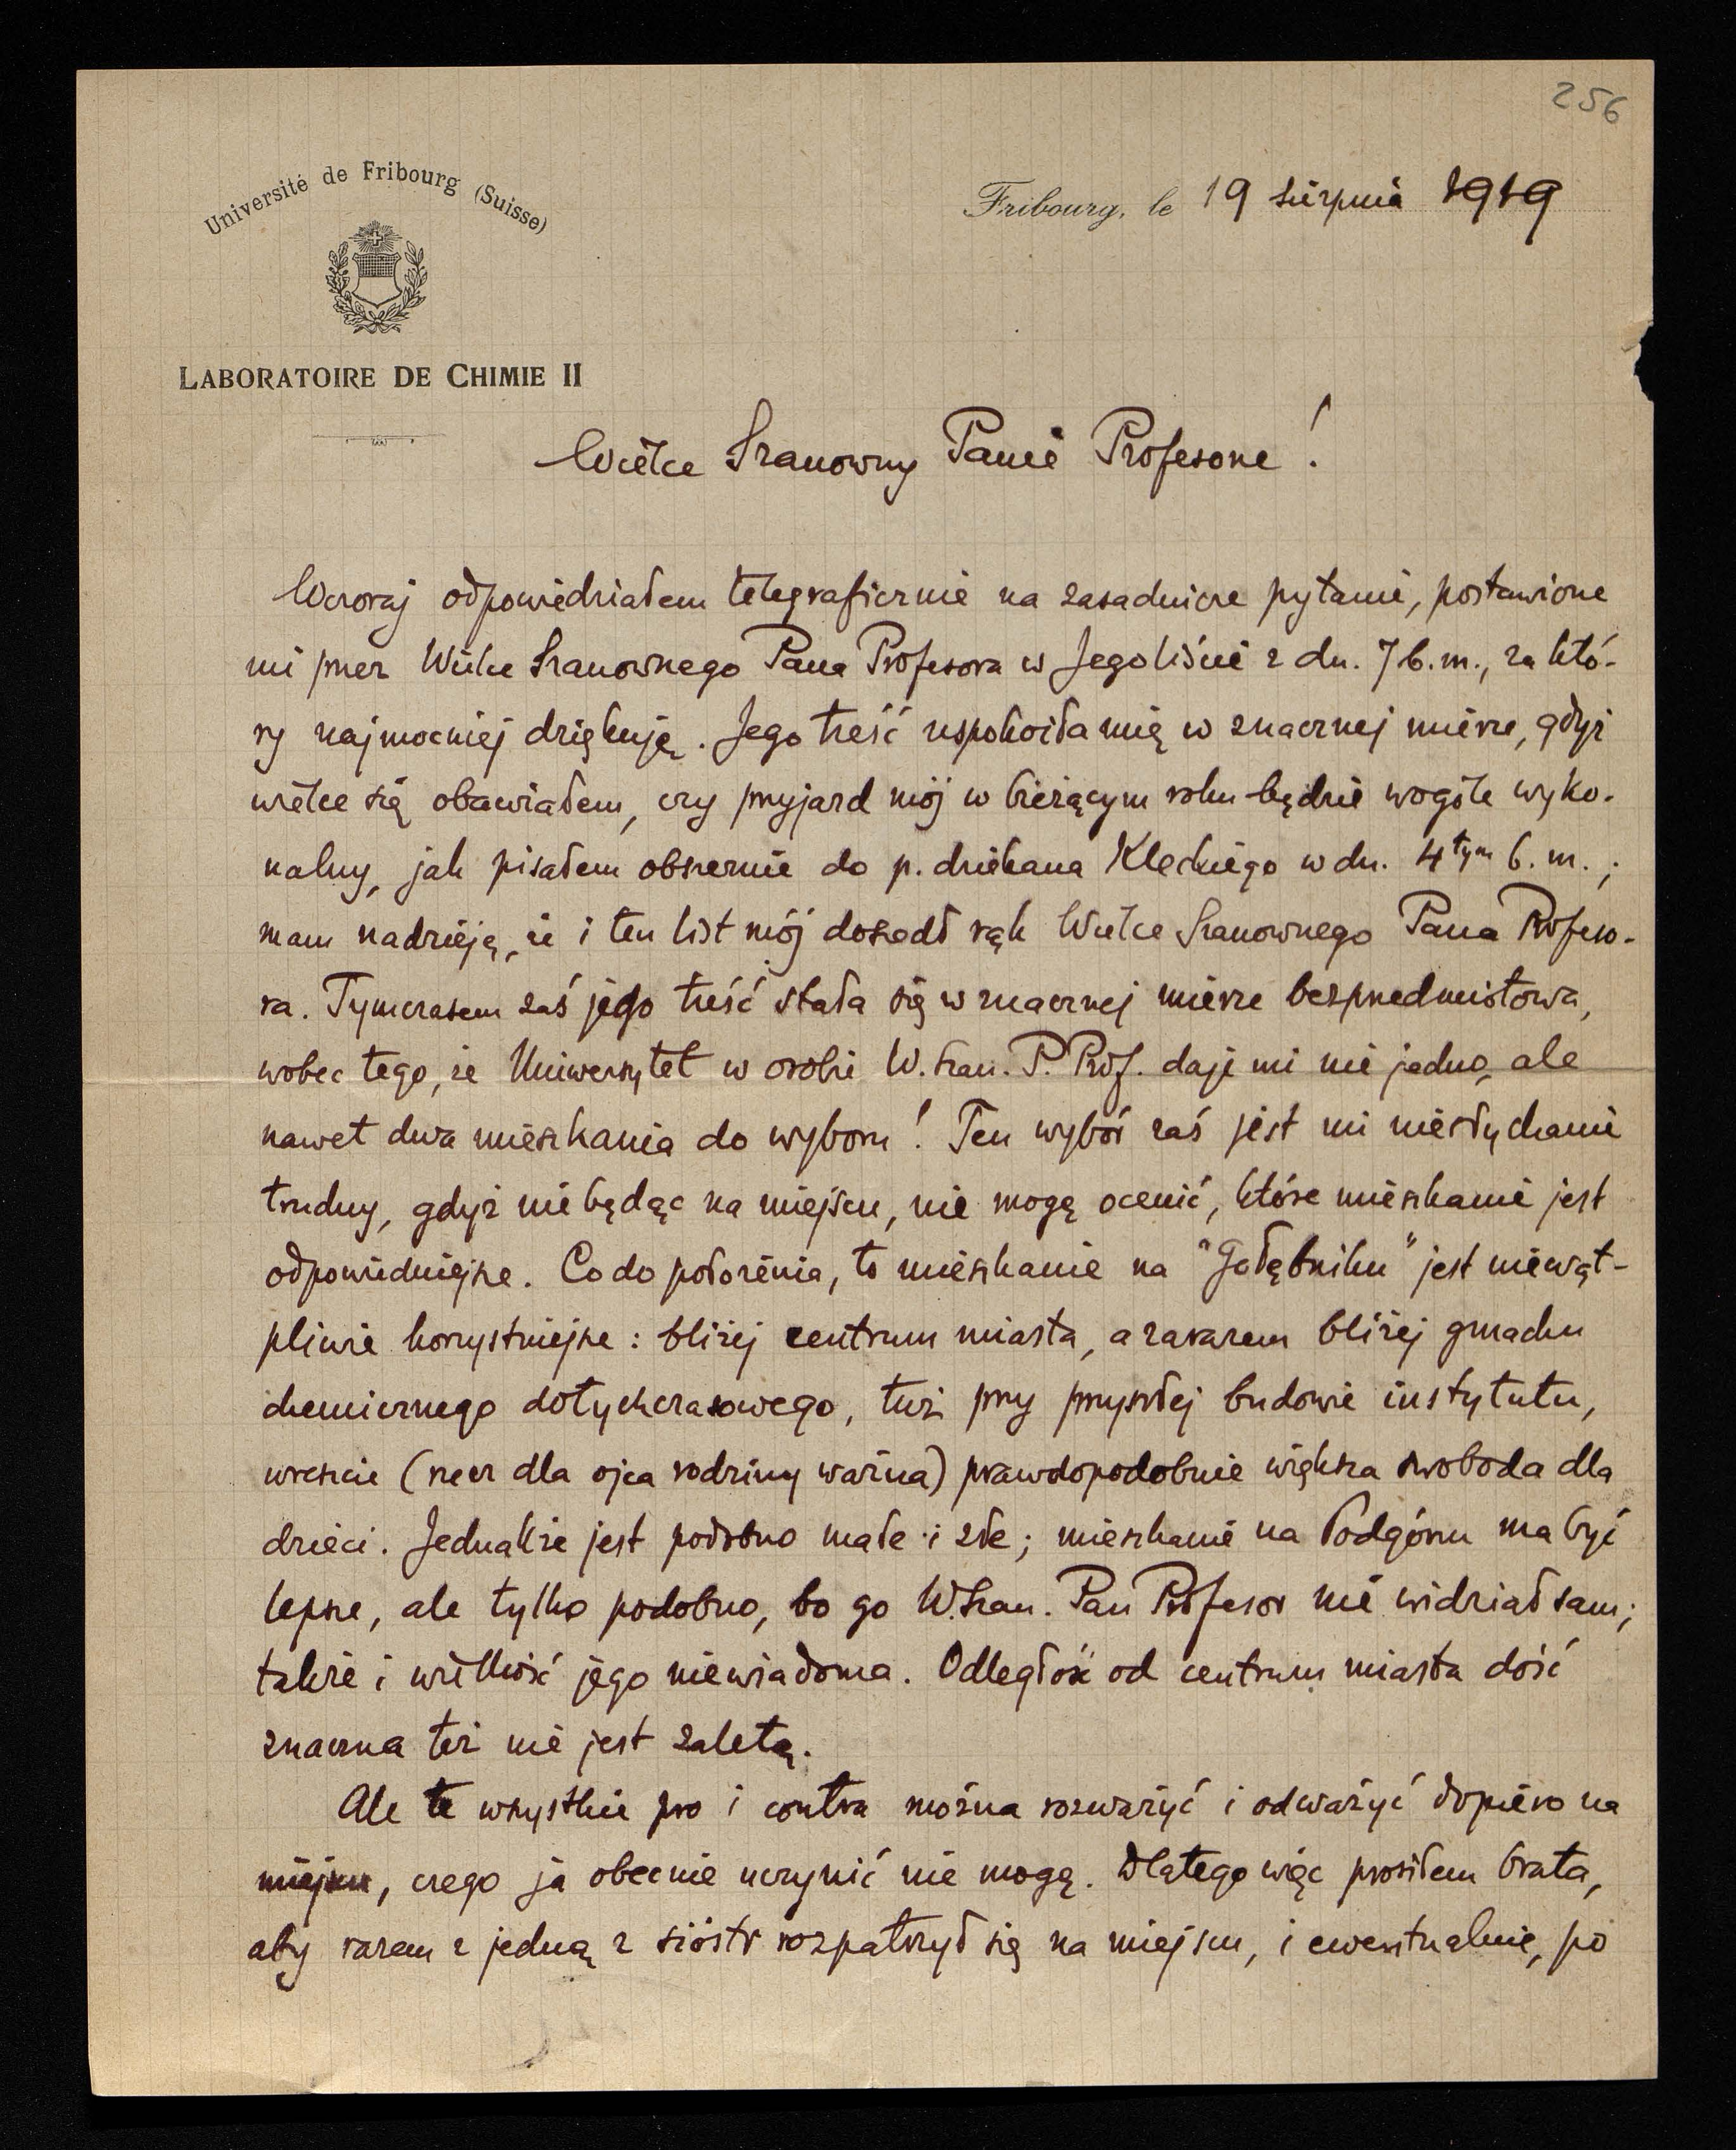 256
Université de Fribourg (Suisse)
Fribourg, le 19 sierpnia 1919
LABORATOIRE DE CHIMIE II
Wielce Szanowny Panie Profesorze!
Wczoraj odpowiedziałem telegraficznie na zasadnicze pytanie, postawione
mi przez Wielce Szanownego Pana Profesora w Jego liście z dn. 7 b.m., za któ-
ry najmocniej dziękuję. Jego treść uspokoiła mię w znacznej mierze, gdyż
wielce się obawiałem, czy przyjazd mój w bieżącym roku będzie wogóle wyko-
nalny, jak pisałem obszernie do p. dziekana Kleckiego w dn. 4tym b.m.;
mam nadzieję, że i ten list mój doszedł rąk Wielce Szanownego Pana Profeso-
ra. Tymczasem zaś jego treść stała się w znacznej mierze bezprzedmiotowa,
wobec tego, że Uniwersytet w osobie W. Szan. P. Prof. daje mi nie jedno, ale
nawet dwa mieszkania do wyboru! Ten wybór zaś jest mi niesłychanie
trudny, gdyż nie będąc na miejscu, nie mogę ocenić, które mieszkanie jest
odpowiedniejsze. Co do położenia, to mieszkanie na "Gołębniku" jest niewąt-
pliwie korzystniejsze: bliżej centrum miasta, a zarazem bliżej gmachu
chemicznego dotychczasowego, tuż przy przyszłej budowie instytutu,
wreszcie (rzecz dla ojca rodziny ważna) prawdopodobnie większa swoboda dla
dzieci. Jednakże jest podobno małe i złe; mieszkanie na Podgórzu ma być
lepsze, ale tylko podobno, bo go W. Szan. Pan Profesor nie widział sam;
także i wielkość jego niewiadoma. Odległość od centrum miasta dość
znaczna też nie jest zaletą.
Ale te wszystkie pro i contra można rozważyć i odważyć dopiero na
miejscu, czego ja obecnie uczynić nie mogę. Dlatego więc prosiłem brata,
aby razem z jedną z sióstr rozpatrzył się na miejscu, i ewentualnie, po